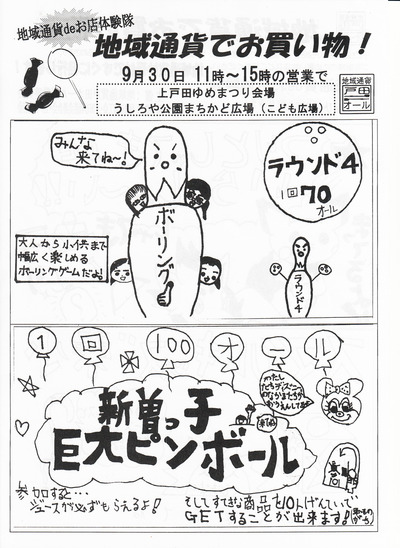 地域通貨deお店体験隊
地域通貨でお買い物！
9月30日 11時～15時の営業で
上戸田ゆめまつり会場
うしろや公園まちかど広場（こども広場）
地域通貨
戸田
オール
みんな
来てね～！
ボーリング
ラウンド4
1回70
オール
大人から小供まで
幅広く楽しめる
ボーリングゲームだよ！
ラウンド4
1回100オール
わたし
たちディズニー
のなかまたちが
おうえんしてます
新曽っ子
巨大ピンボール
参加すると…
ジュースが必ずもらえるよ！
そしてすてきな商品を10人げんていで
GETすることが出来ます！
早いもの
がち